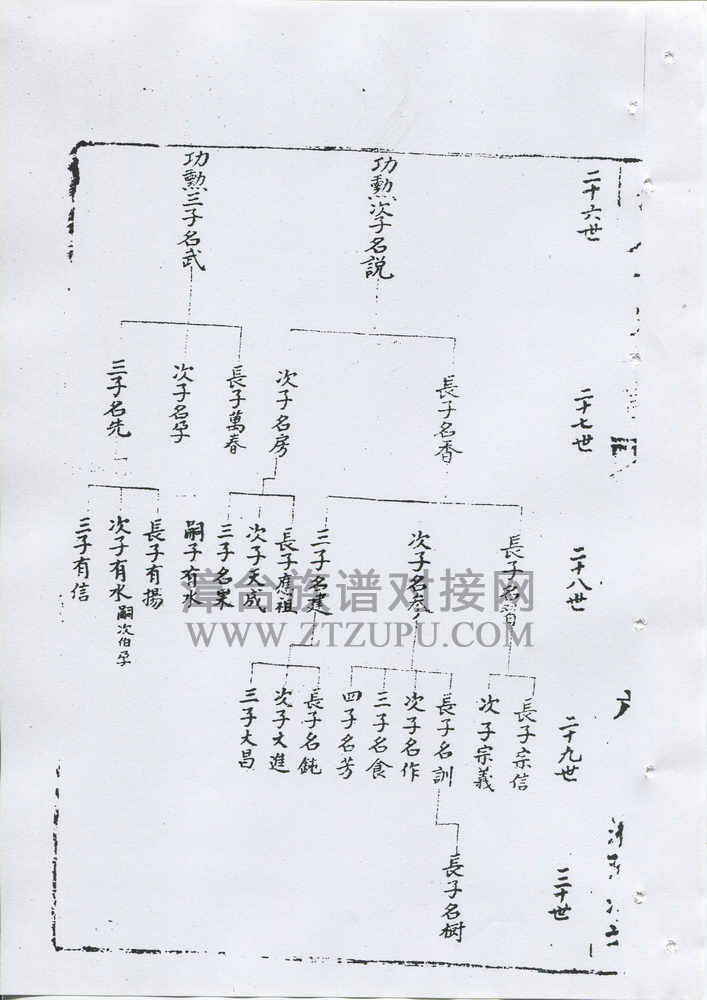 二十六世
功勲次子名説
功勲三子名武
二十七世
長子名香
次子名房
長子萬春
次子名孕
三子名先
二十八世
次子名参
三子名建
長子應祖
次子天成
三子名果
嗣子有水
長子有揚
次子有水嗣次伯孕
三子有信
二十九世
長子宗信
次子宗義
長子名訓
次子名作
三子名食
四子名芳
長子名鈍
次子大進
三子大昌
三十世
長子名树
漳台族谱对接网
WWW.ZTZUPU.COM